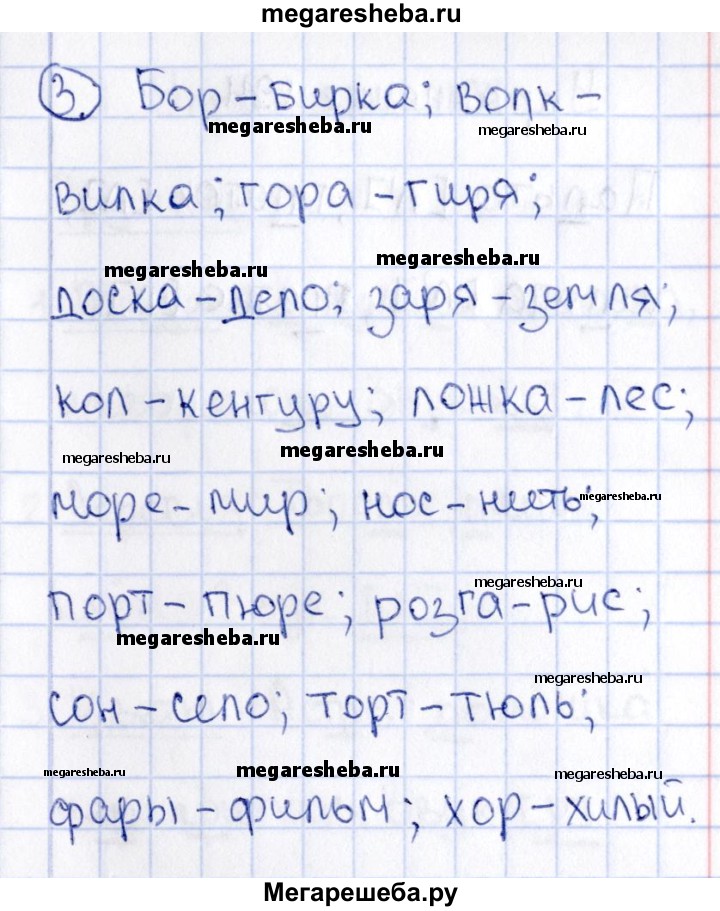 megaresheba.ru
3. Бор - бирка; волк -
megaresheba.ru megaresheba.ru
вилка; гора - гиря;
megaresheba.ru megaresheba.ru
доска - дело; заря - земля;
кол - кенгуру; ложка - лес;
megaresheba.ru megaresheba.ru
море - мир; нос - нить;
megaresheba.ru
megaresheba.ru
порт - пюре; розга - рис;
megaresheba.ru
megaresheba.ru
сон - село; торт - тюль;
megaresheba.ru megaresheba.ru megaresheba.ru
фары - фильм; хор - хилый.
Мегарешеба.ру